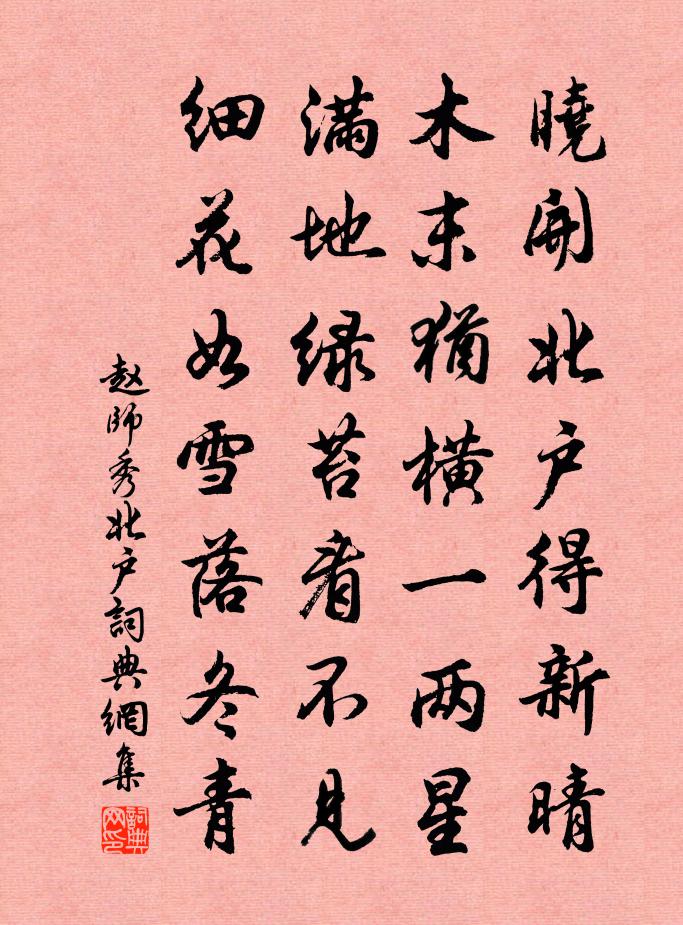 曉開北户得新晴
木末猶橫一两星
满地绿苔看不見
细花如雪落冬青
赵師秀北户詞典網集
詞典网印